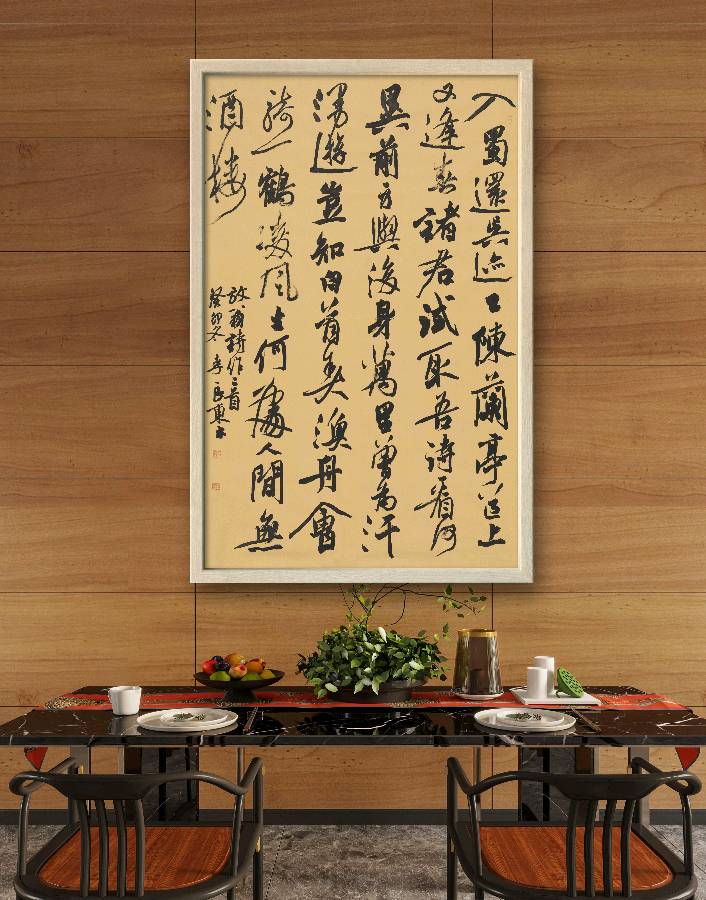 入蜀還吳迹已陳蘭亭道上
又逢春諸君試取吾詩看何
異前身與後身萬里曾為汗
漫遊豈知白首弄漁舟會
騎一鶴凌風去何處人間無
酒樓
放翁詩作二首
癸卯冬李良東書